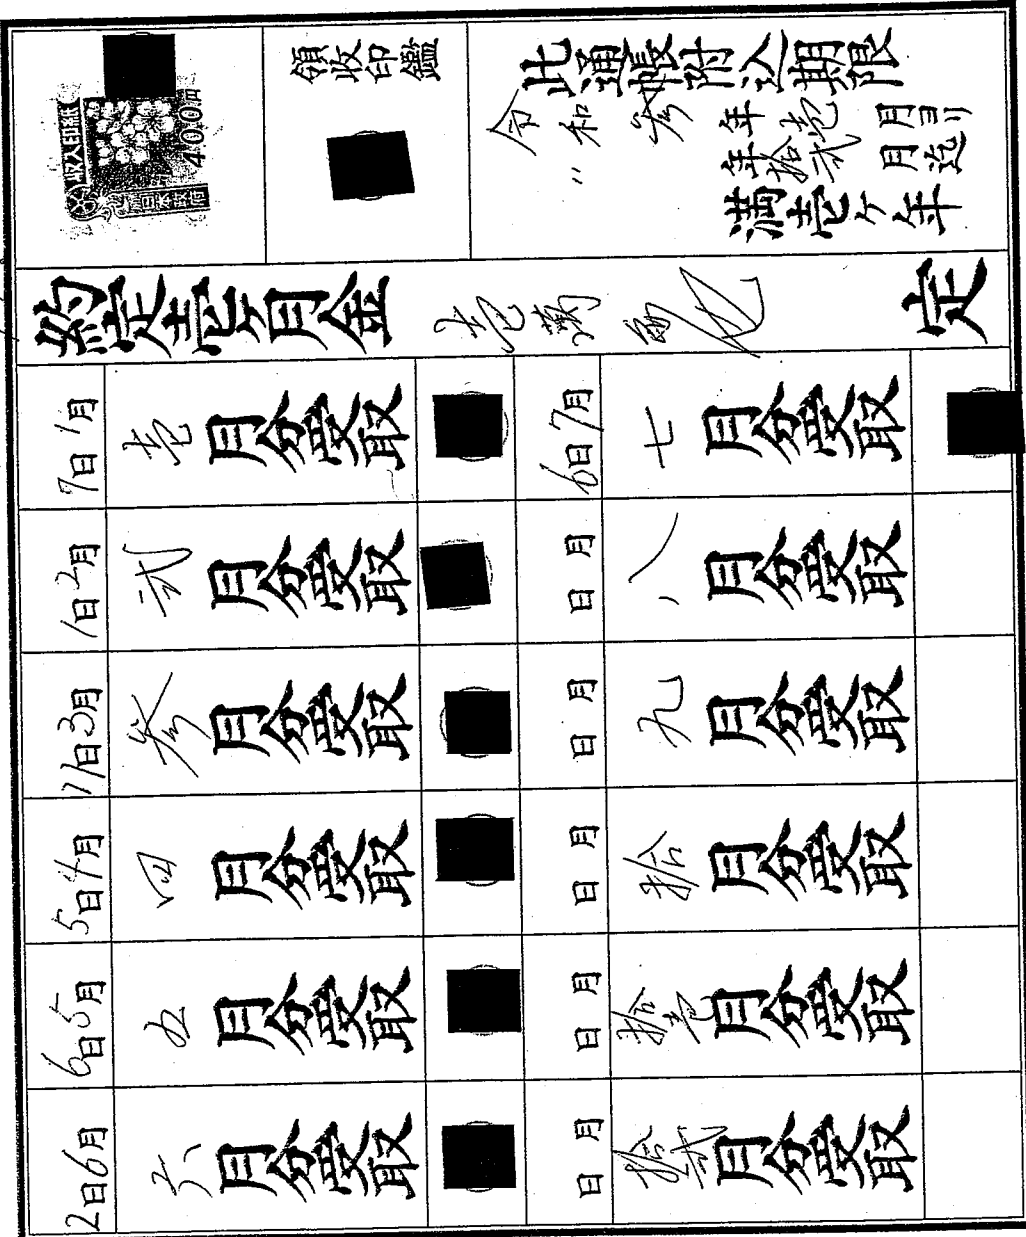 此通帳附込期限
令和参年壱月ヨリ
〃年拾弐月迄
満壱ヶ年
領収印鑑
収入印紙
400円
日本政府
約定壱ヶ月金
壱萬
定
1月7日
壱月分受取
2月1日
弐月分受取
3月11日
参月分受取
4月5日
四月分受取
5月6日
五月分受取
6月2日
六月分受取
7月6日
七月分受取
月日
八月分受取
月日
九月分受取
月日
拾月分受取
月日
拾壱月分受取
月日
拾弐月分受取